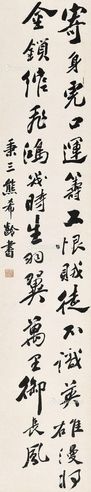 寄身虎口運籌工恨賊徒不識英雄漫將
金鎖飛鴻幾時生羽翼萬里御長風
秉三熊希齡書